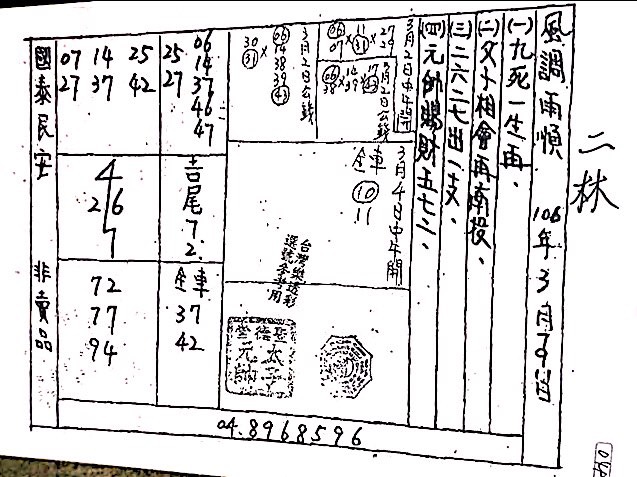 二林
風調雨順 106年3月7911日
(一)九死一生再、
(二)父子相會再南投、
(三)二六二七出一支、
(四)元帥賜財五七二、
3月2日中午開
06 × 11 × 27
07 31 29
3月2日公錢
06 × 14 × 17
38 39 43
3月2日公錢
06
14
38
39
43
30 ×
31
3月4日中午開
全車
10
11
台灣樂透彩
選號參考用
聖太子
德
堂元帥
06
14
25 37
27 46
47
07 14 25
27 37 42
吉尾
7
2
4
2 6
7
全車
37
42
72
77
94
國泰民安 非賣品
04.8968596